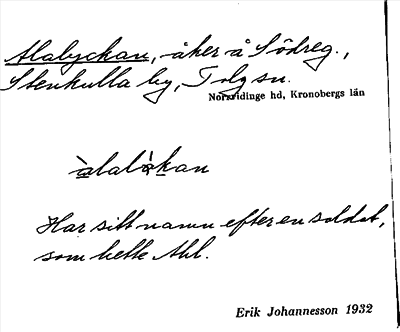 Alalyckan, åker å Södreg.,
Stenkulla by, Tolg sn.
Norrvidinge hd, Kronobergs län
àlalỳkan
Har sitt namn efter en soldat,
som hette Ahl.
Erik Johannesson 1932